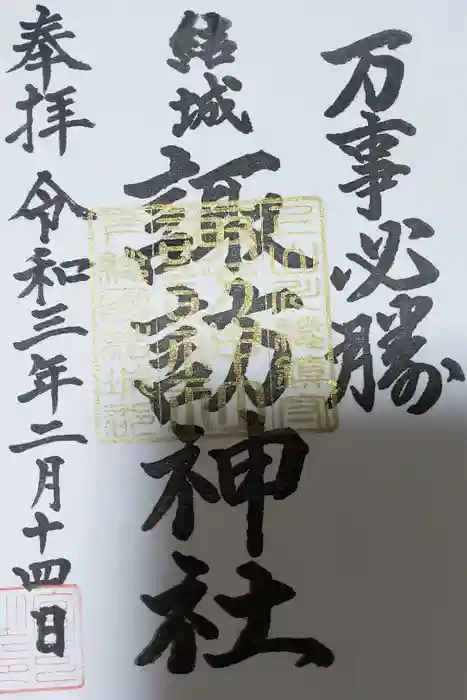 万事必勝
結城
諏訪神社
奉拝
令和三年二月十四日